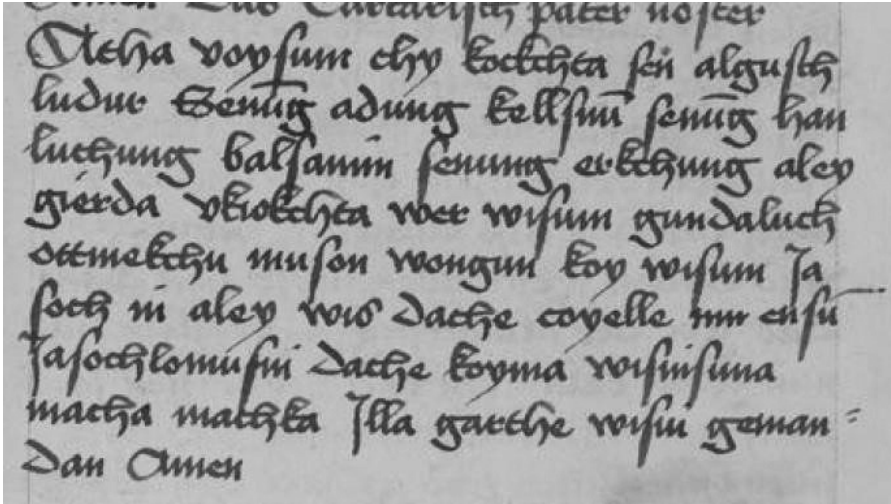 Amen Das Tartarisch pater noster
Atha voysum chy kockchta sen algusch
ludur Senūg adung kellsuū senūg han
luchung balsamin senung erkchung aley
gierda vkiokchta wer wisum gundaluch
ottmekchu muson wongun koy wisum Ja
soch ni aley wis dache coyelle nur ensu
Jasochlomusni dache koyma wisinsuna
macha machka Illa garthe wisni geman=
dan Amen